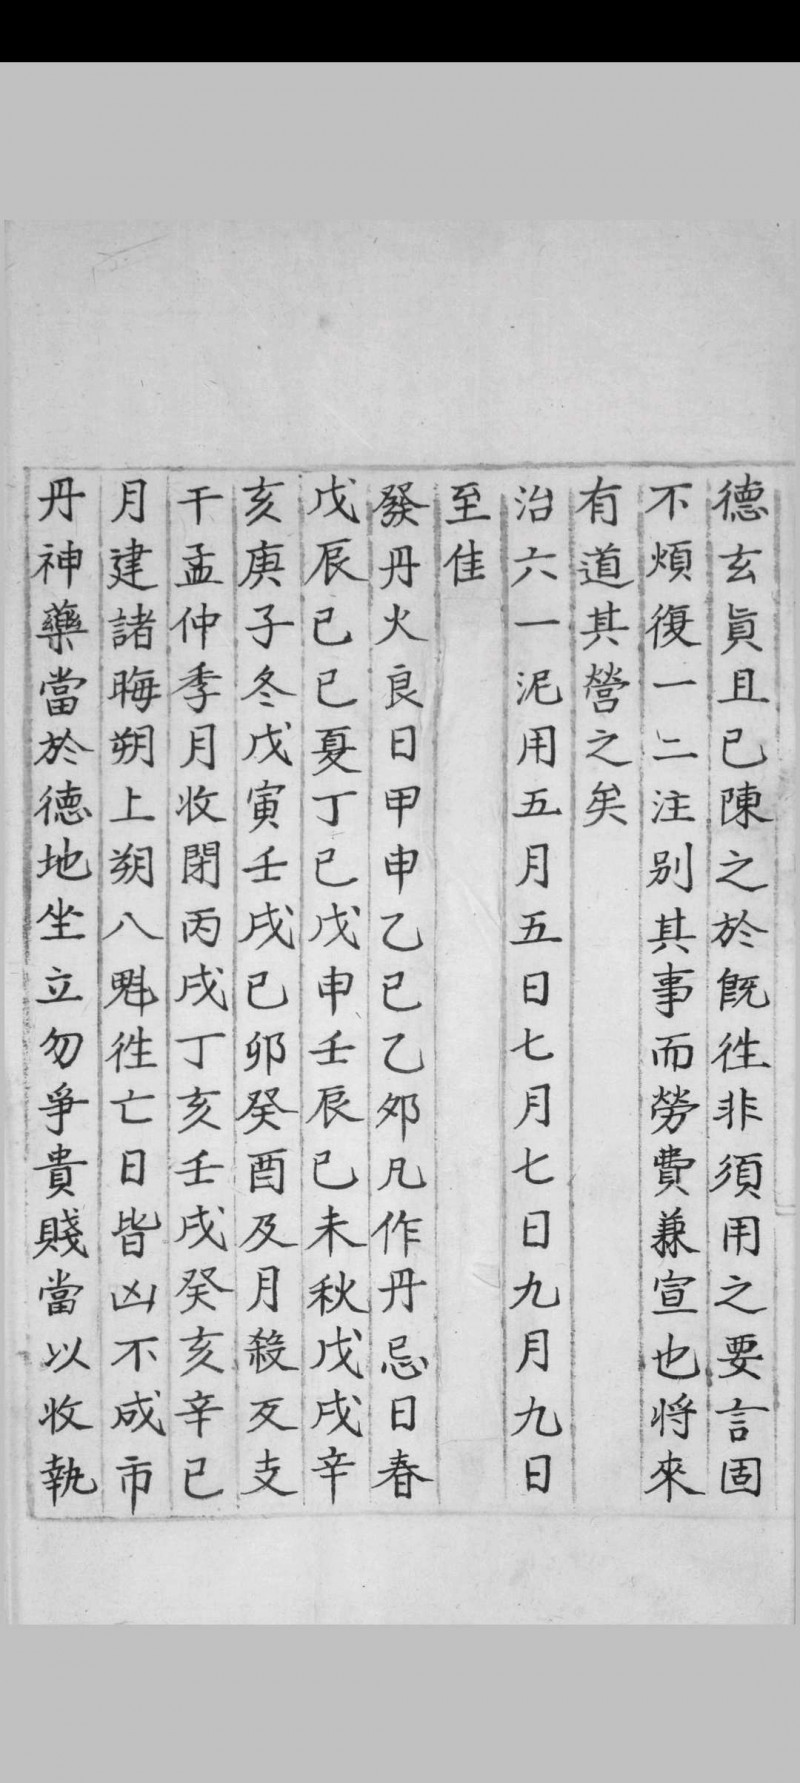 德玄眞且已陳之於旣徃非須用之要言固
不煩復一二注别其事而勞費兼宣也将來
有道其營之矣
治六一泥用五月五日七月七日九月九日
至佳
發丹火良日甲申乙巳乙夘凡作丹忌日春
戊辰己巳夏丁巳戊申壬辰己未秋戊戌辛
亥庚子冬戊寅壬戌己卯癸酉及月殺反支
干孟仲季月收閉丙戌丁亥壬戌癸亥辛巳
月建諸晦朔上朔八魁徃亡日皆凶不成市
丹神藥當於德地坐立勿爭貴賤當以收執